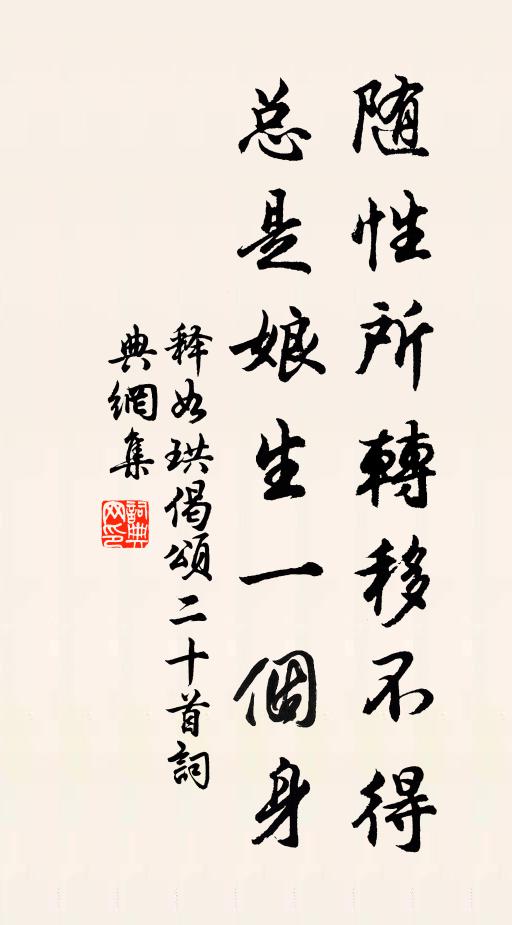 随性所轉移不得
总是娘生一個身
释如珙偈頌二十首詞
典網集
詞典
网印